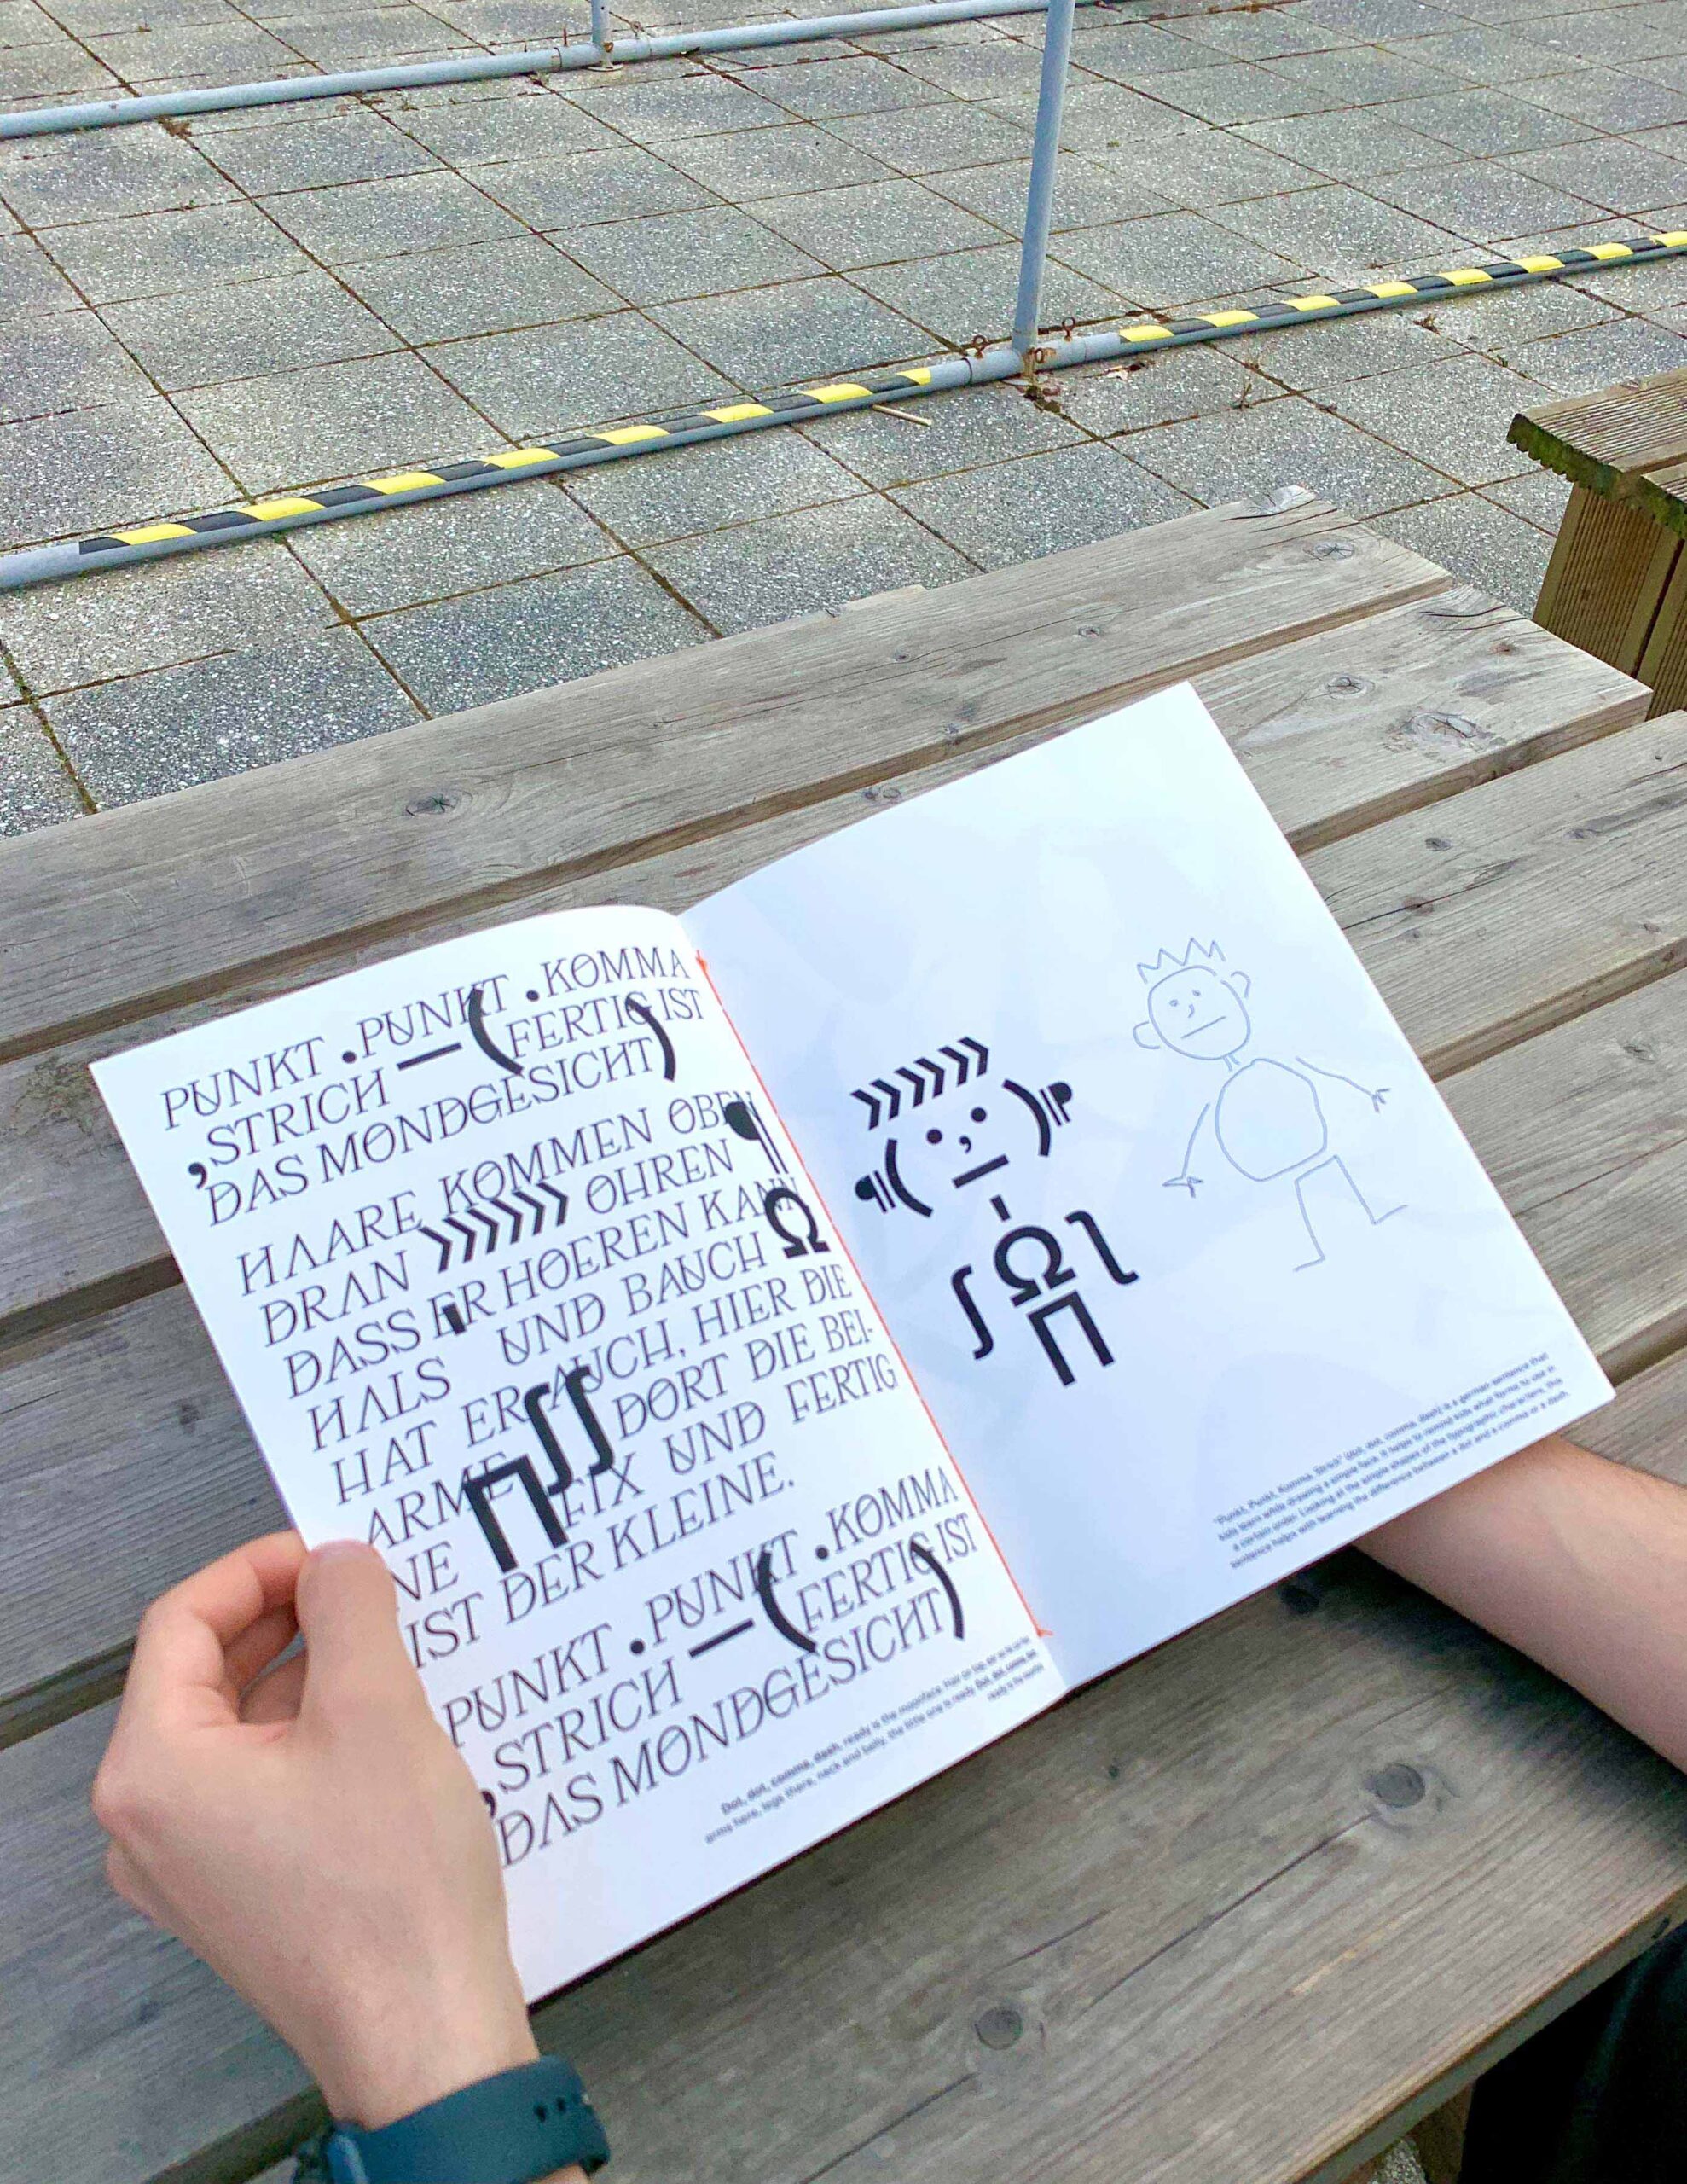 PUNKT .PUNKT .KOMMA
,STRICH — (FERTIG IST
DAS MONDGESICHT)
HAARE KOMMEN OBEN
DRAN »»» OHREN ¶
DASS ER HOEREN KANN
HALS ' UND BAUCH Ω
HAT ER AUCH, HIER DIE
ARME ∫∫ DORT DIE BEI-
NE Π FIX UND FERTIG
IST DER KLEINE.
PUNKT .PUNKT .KOMMA
,STRICH — (FERTIG IST
DAS MONDGESICHT)
Dot, dot, comma, dash, ready is the moonface. Hair on top,
arms here, legs there, neck and belly, the little one is ready. Dot, dot, comma,
ready is the
"Punkt, Punkt, Komma, Strich" (dot, dot, comma, dash) is a german sentence that
kids learn while drawing a simple face. It helps to remind kids what forms to use in
a certain order. Looking at the simple shapes of the typographic characters, this
sentence helps with learning the difference between a dot and a comma or a dash.